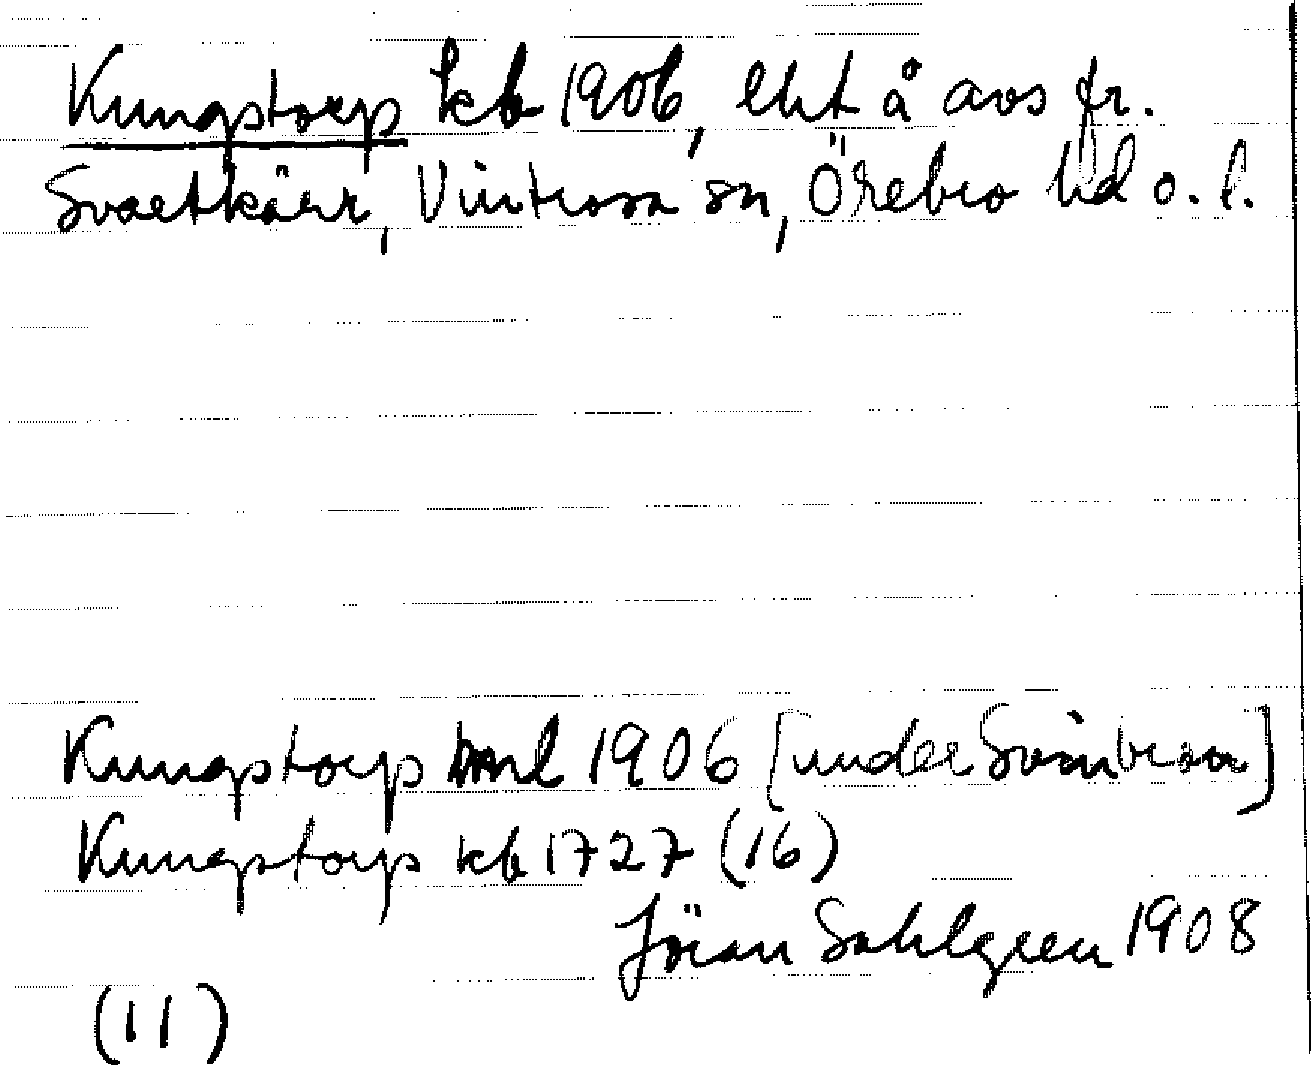 Kungstorp kb 1906, lht å avs fr.
Svartkärr, Vintrosa sn, Örebro hd o. l.
Kungstorp 1906 [under Svinbroa]
Kungstorp kb 1727 (16)
Jöran Sahlgren 1908
(11)